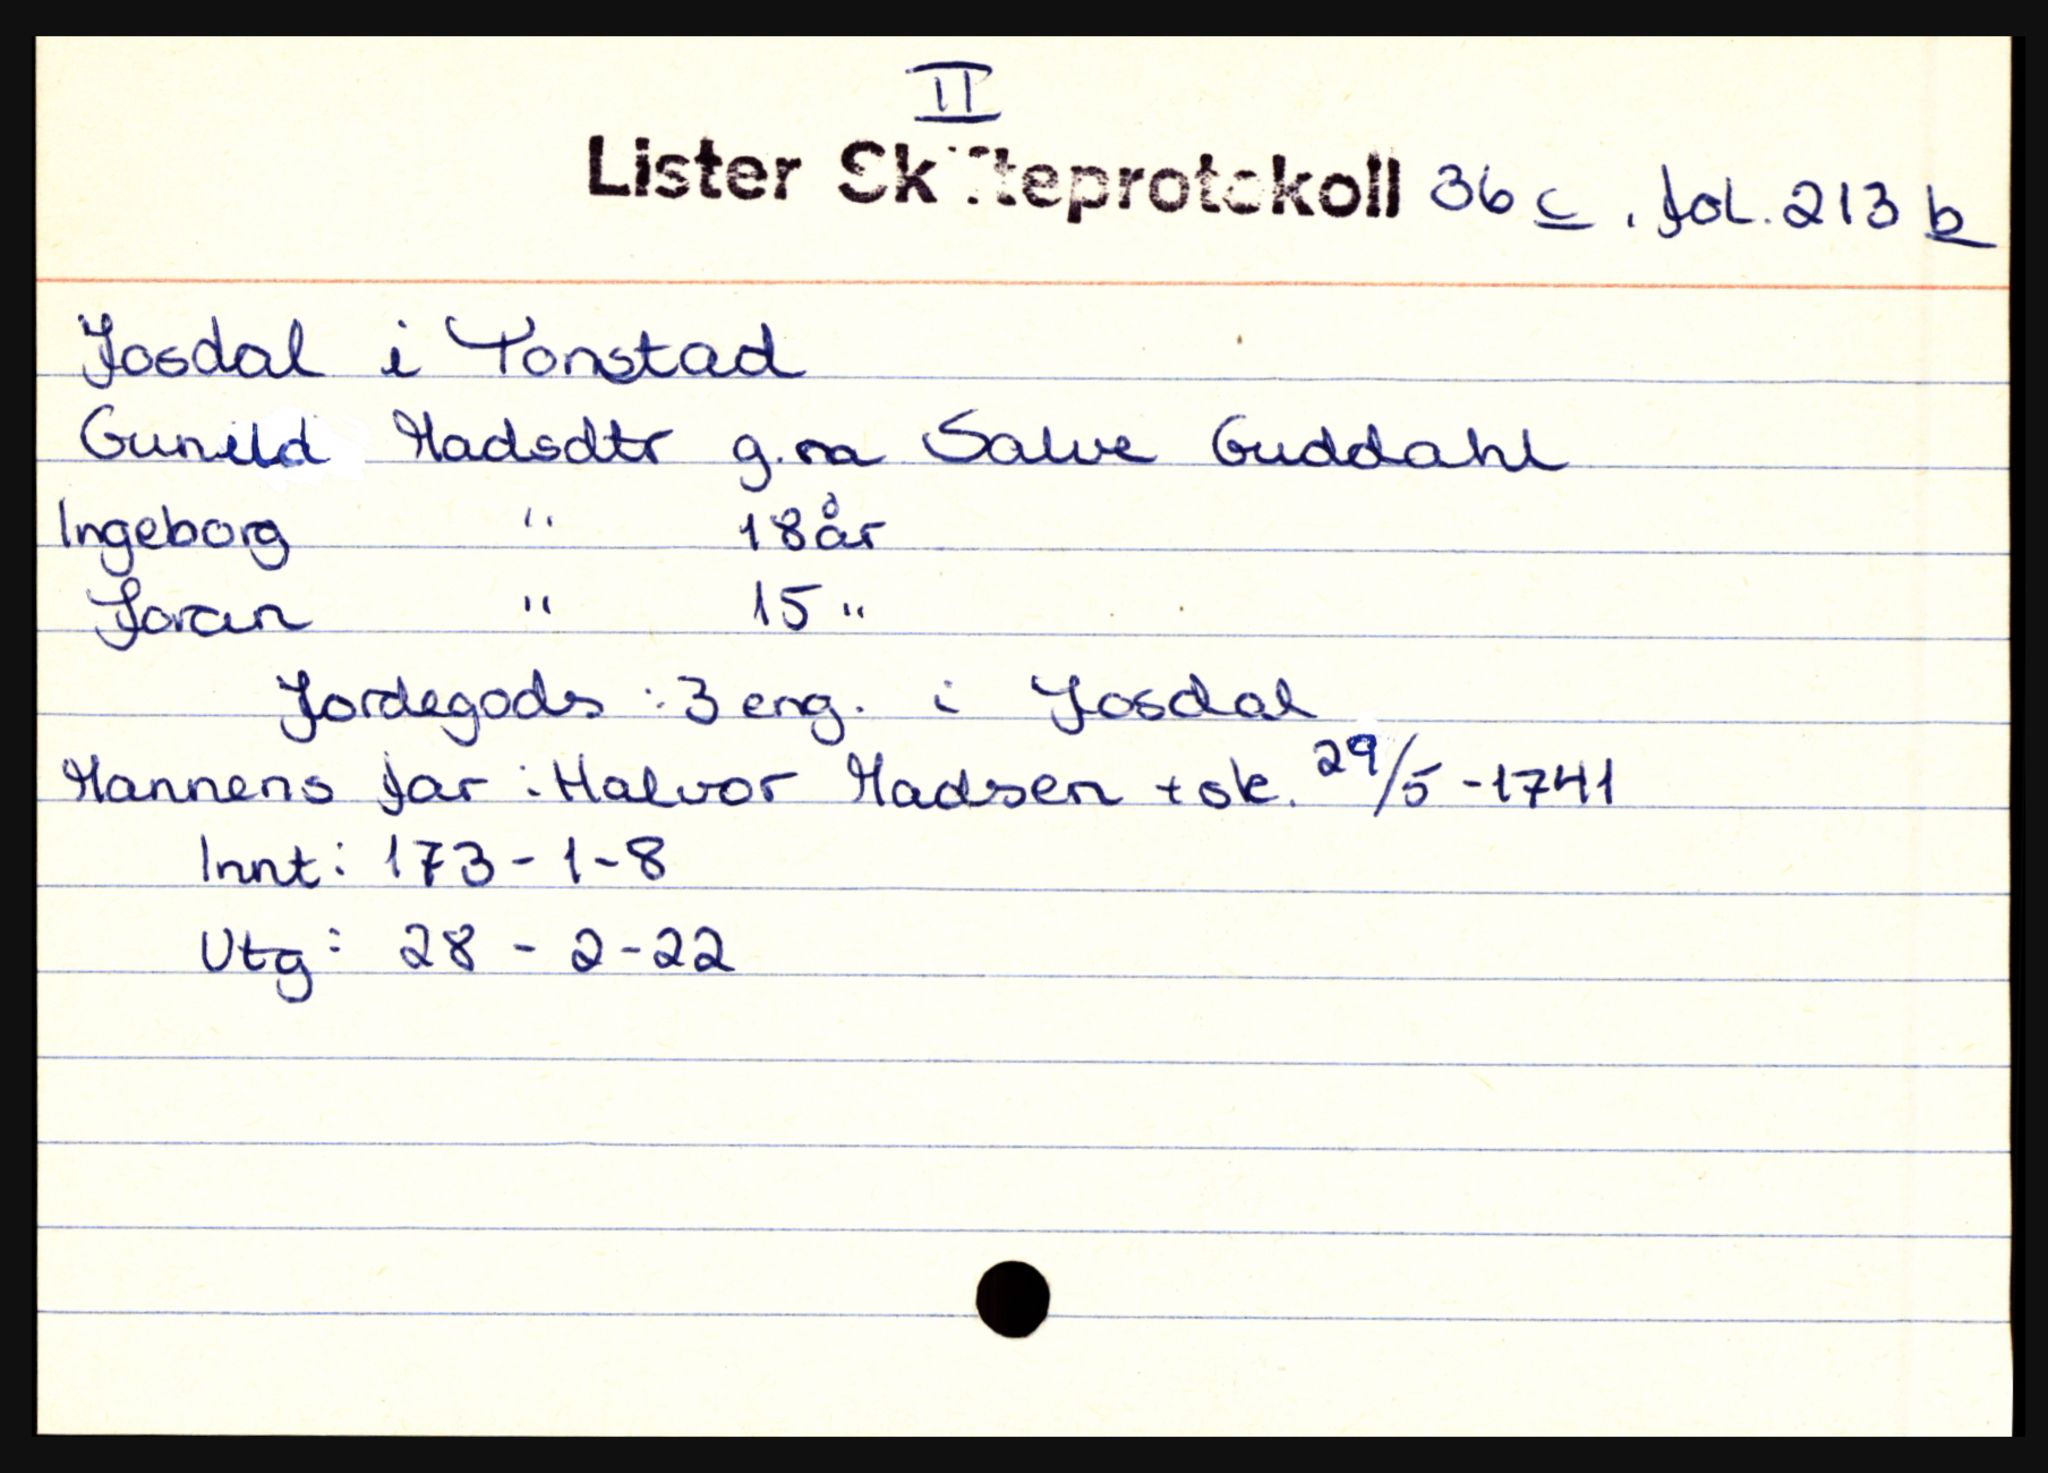 II
Lister Skifteprotokoll 36 c, fol. 213 b
Josdal i Tonstad
Gunild Madsdtr g.m Salve Guddahl
Ingeborg " 18 år
Joran " 15 "
Jordegods : 3 eng. i Josdal
Mannens far : Halvor Madsen + sk. 29/5 - 1741
Innt: 173 - 1 - 8
Utg: 28 - 2 - 22